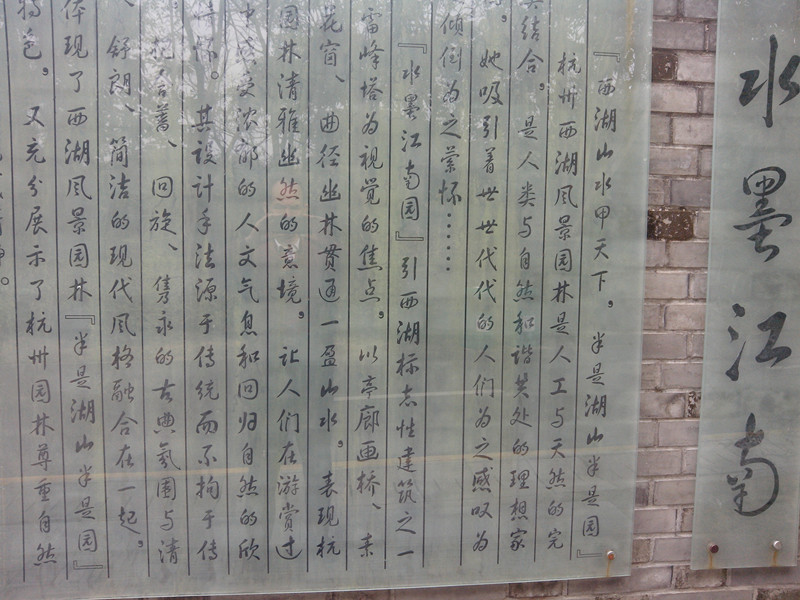 水墨江南
『西湖山水甲天下，半是湖山半是园』
杭州西湖风景园林是人工与天然的完
美结合。是人类与自然和谐共处的理想家
她吸引着世世代代的人们为之感叹为
倾倒为之萦怀……
『水墨江南园』引西湖标志性建筑之一
雷峰塔为视觉的焦点。以亭廊画桥、素
花窗、曲径幽林贯通一盈山水，表现杭
园林清雅幽然的意境。让人们在游赏过
中感受浓郁的人文气息和回归自然的欣
怀。其设计手法源于传统而不拘于传
把含蓄、回旋、隽永的古典氛围与清
舒朗、简洁的现代风格融合在一起，
体现了西湖风景园林『半是湖山半是园』
特色。又充分展示了杭州园林尊重自然
。